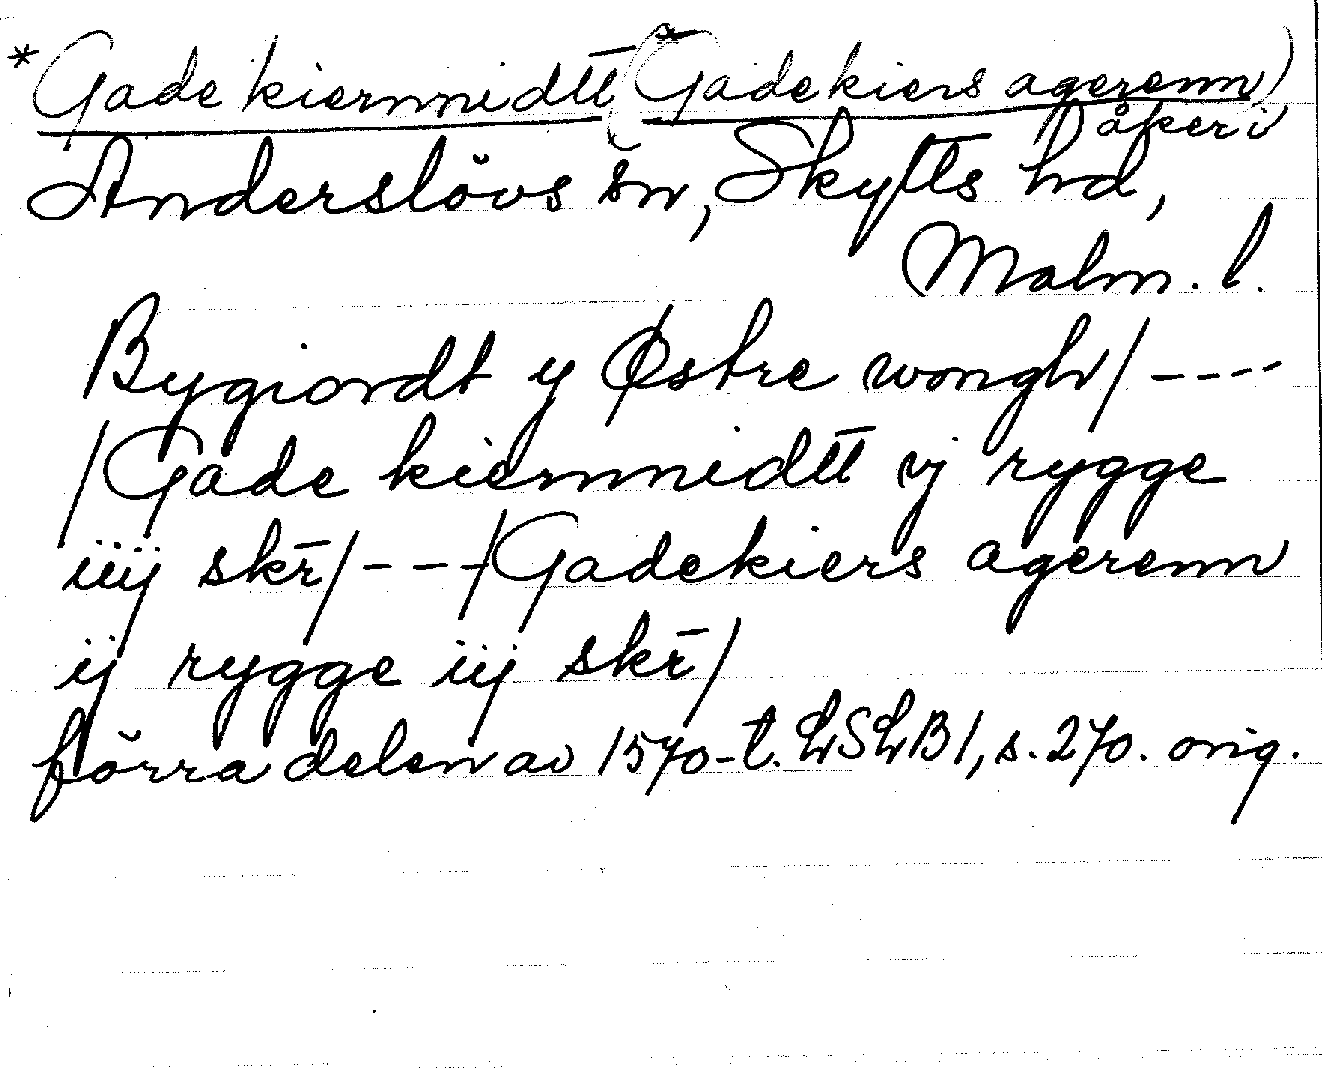 *Gade kiernnidtt̄ (*Gadekiers agerenn)
åker i
Anderslövs sn, Skytts hd,
Malm. l.
Bygiordt y Østre wongh/ ----
/Gade kiernnidtt̄ vj rygge
iiij skr̄/ --- /Gadekiers agerenn
ij rygge iij skr̄/
förra delen av 1570-t. LSLB 1, s. 270. orig.